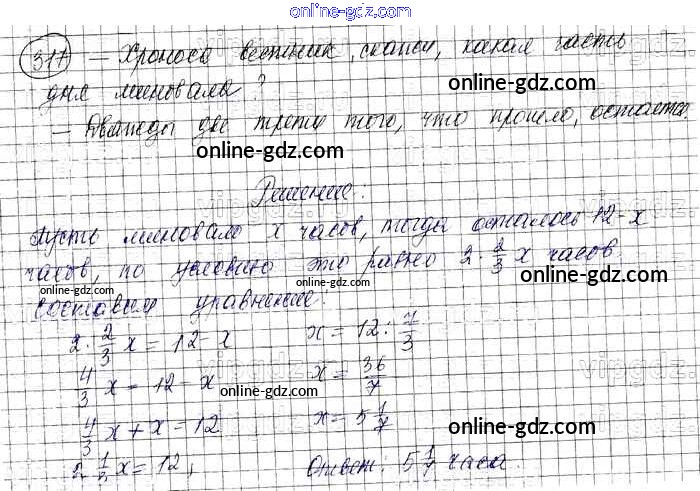 online-gdz.com
317 – Хроноса вестник, скажи, какая часть
дня миновала?
online-gdz.com
– Дважды две трети того, что прошло, остаётся.
online-gdz.com
Решение:
Пусть миновало x часов, тогда осталось 12-x
часов, по условию это равно 2·2/3 x часов.
online-gdz.com
online-gdz.com
Составим уравнение:
2·2/3 x = 12-x x = 12 : 7/3
4/3 x = 12-x x = 36/7
online-gdz.com
4/3 x + x = 12 x = 5 1/7
online-gdz.com
2 1/3 x = 12; Ответ: 5 1/7 часа.
online-gdz.com